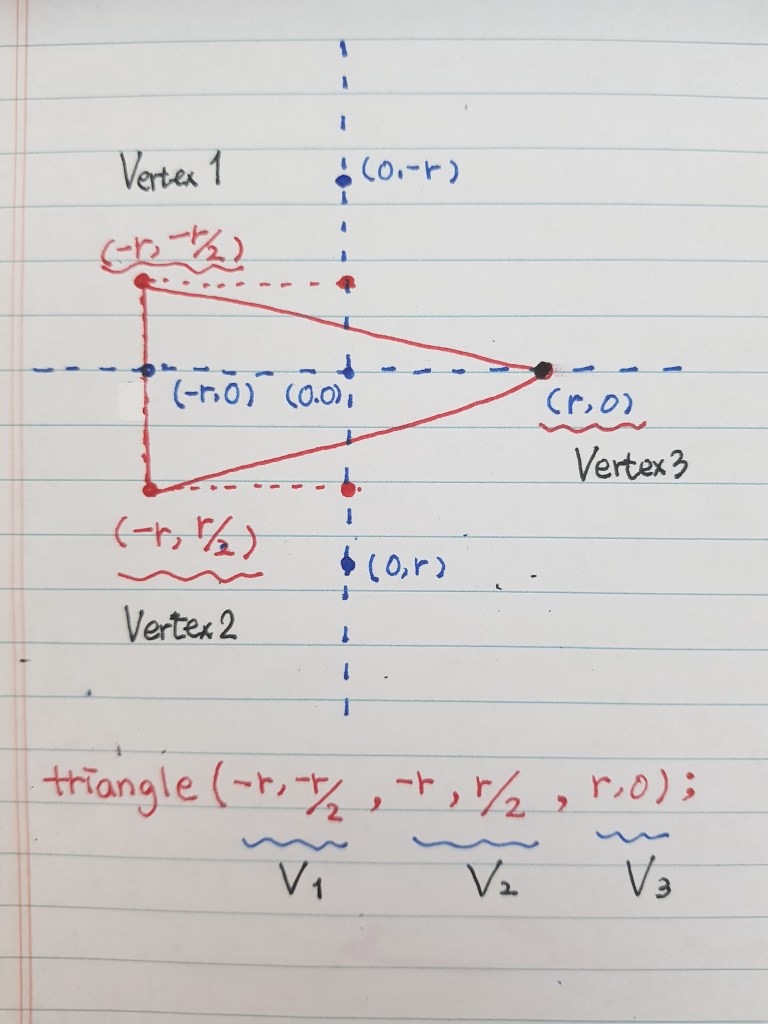 Vertex 1
(0,-r)
(-r, -r/2)
(-r,0)
(0.0)
(r,0)
Vertex3
(-r, r/2)
(0,r)
Vertex2
triangle (-r, -r/2 , -r , r/2 , r,0) ;
V1 V2 V3